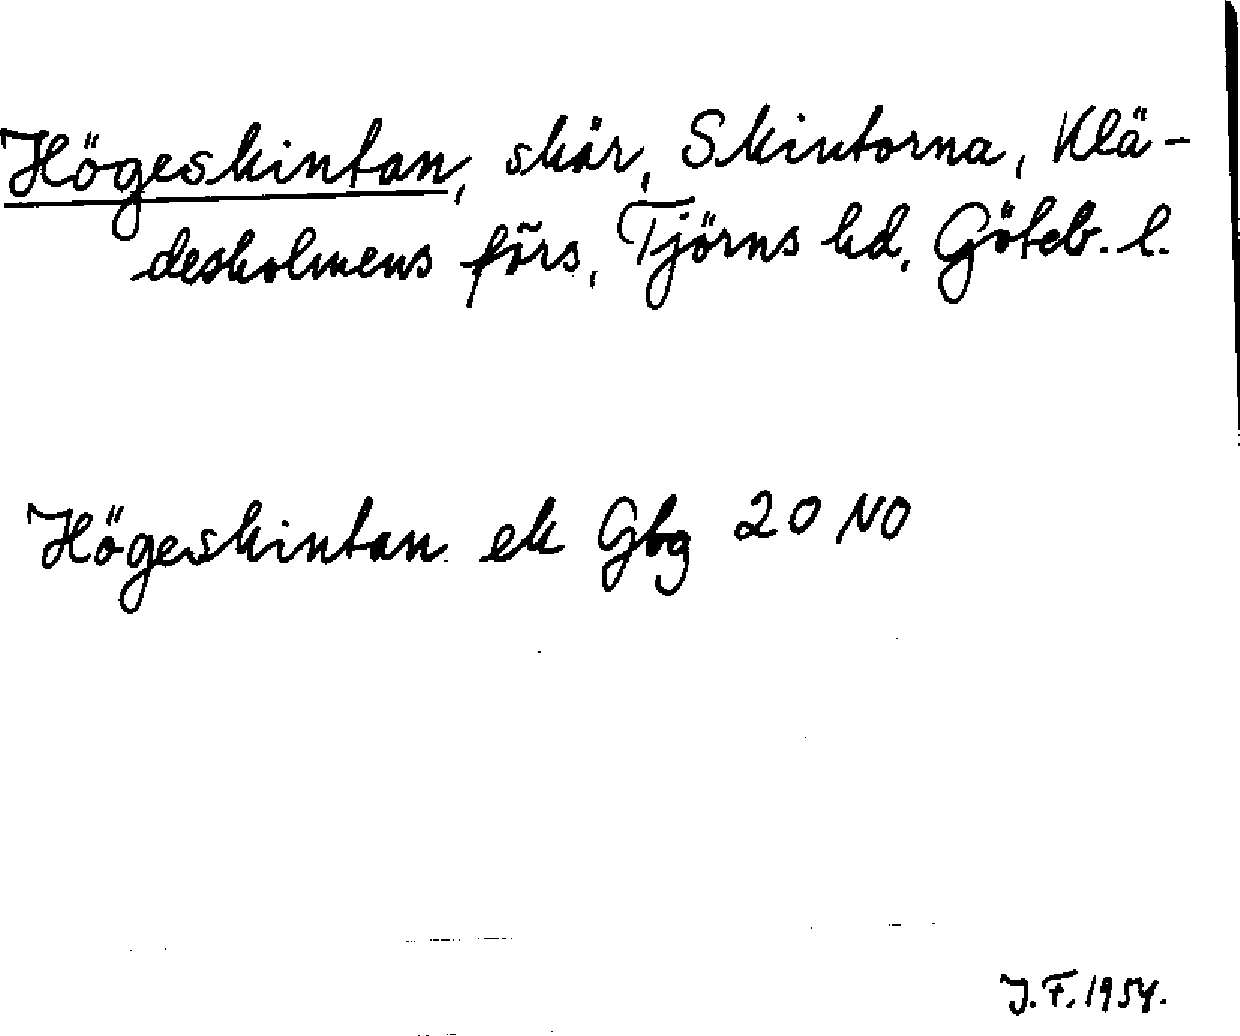 Högeskintan, skär, Skintorna, Klä-
desholmens förs, Tjörns hd, Göteb. l.
Högeskintan ek Gbg 20 NO
J.F. 1954.